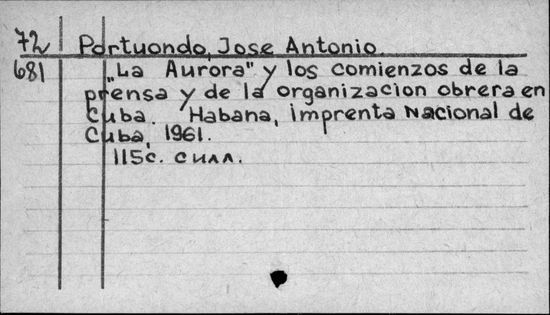 72 Portuondo, Jose Antonio
681 „La Aurora" y los comienzos de la
prensa y de la organizacion obrera en
Cuba. Habana, imprenta Nacional de
Cuba, 1961.
115с. с илл.